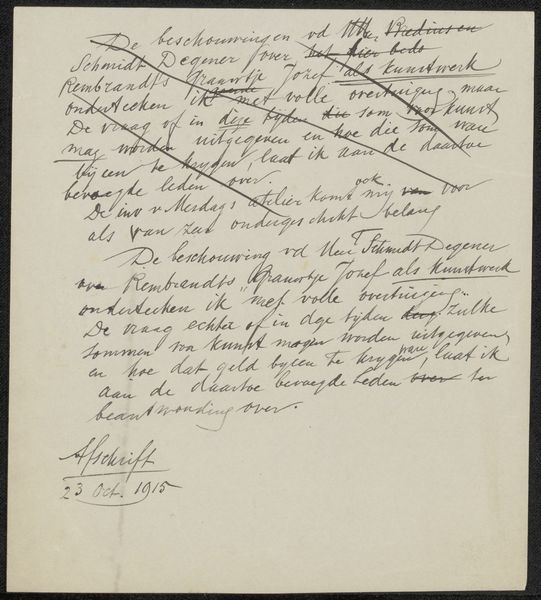 De beschouwingen vd Bredius en
Schmidt Degener over het hier beds
Rembrandt's Grauwtje Jozef als kunstwerk
onderteeken ik gaarne met volle overtuiging, maar
De vraag of in deze tijden die som voor kunst
mag worden uitgegeven en hoe die som ware
bijeen te krijgen, laat ik aan de daartoe
bevoegde leden over.
De inv v Mesdags atelier komt ook mij van voor
als van zeer ondergeschikt belang
De beschouwing vd Heer Schmidt Degener
over Rembrandt's "Grauwtje Jozef als kunstwerk
onderteeken ik met volle overtuiging.
De vraag echter of in deze tijden zulke
sommen voor kunst mogen worden uitgegeven
en hoe dat geld bijeen te krijgen ware, laat ik
aan de daartoe bevoegde leden over ter
beantwoording over.
Afschrift
23 Oct. 1915